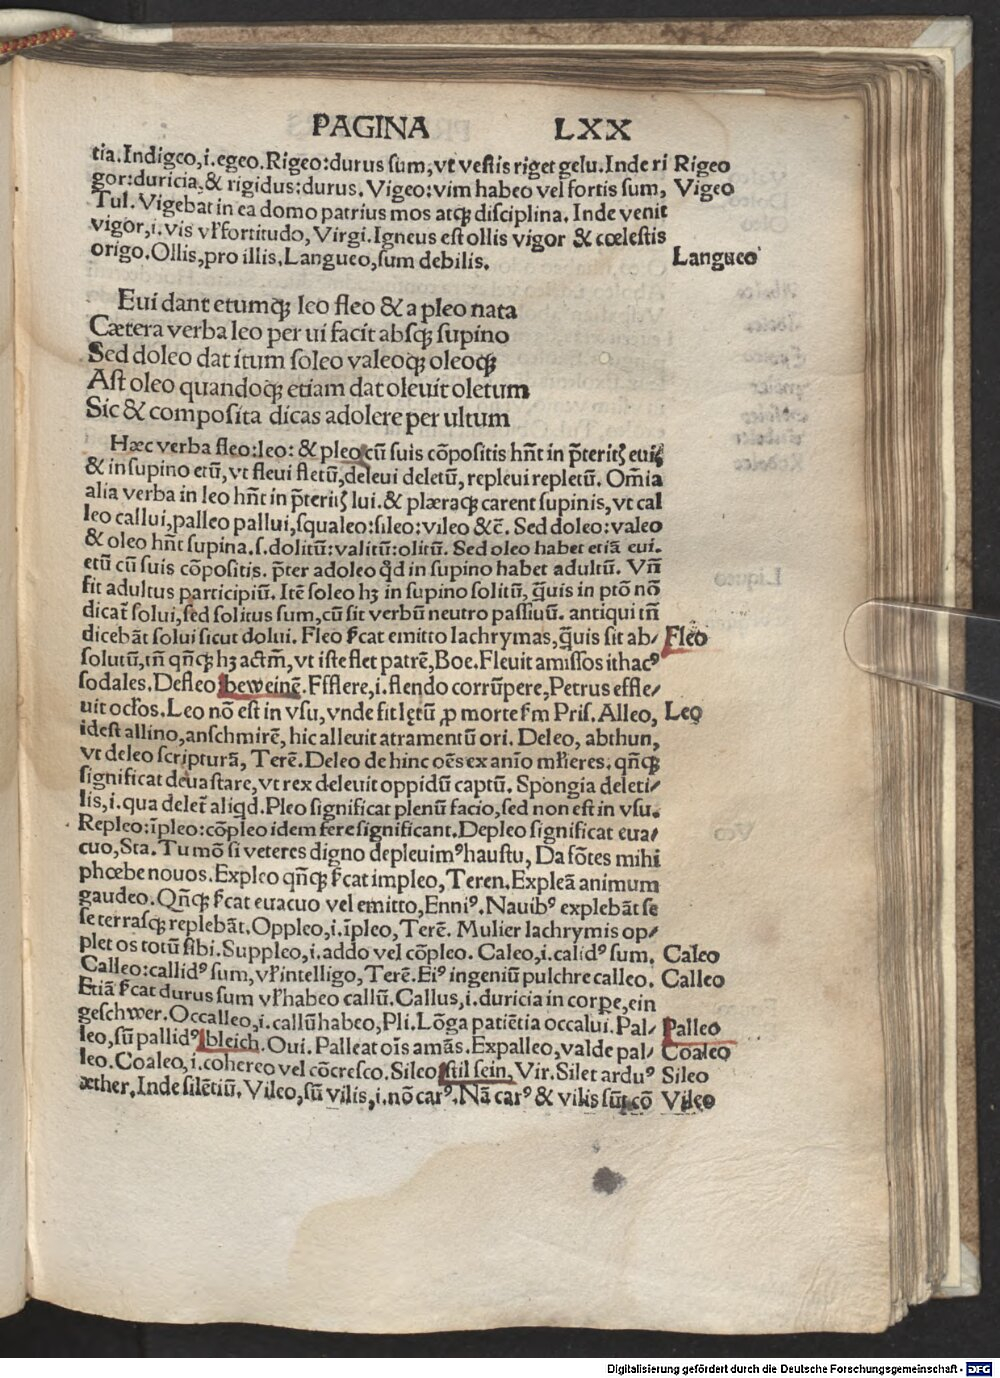 PAGINA LXX
tia.Indigeo,i.egeo.Rigeo:durus sum,vt vestis riget gelu.Inde ri Rigeo
gor:duricia,& rigidus:durus.Vigeo:vim habeo vel fortis sum, Vigeo
Tul.Vigebāt in ea domo patrius mos atqꝫ disciplina.Inde venit
vigor,i.vis vꝉ fortitudo,Virgi.Igneus est ollis vigor & cœlestis
origo.Ollis,pro illis.Langueo,sum debilis. Langueo
Eui dant etumqꝫ leo fleo & a pleo nata
Cætera verba leo per ui facit absqꝫ supino
Sed doleo dat itum soleo valeoqꝫ oleoqꝫ
Ast oleo quandoqꝫ etiam dat oleuit oletum
Sic & composita dicas adolere per ultum
Hæc verba fleo:leo:& pleo cū suis cōpositis hñt in p̄teritꝭ eui,
& in supino etū,vt fleui fletū,deleui deletū,repleui repletū. Om̄ia
alia verba in leo hñt in p̄teritꝭ lui.& plæraqꝫ carent supinis,vt cal
leo callui,palleo pallui,squaleo:sileo:vileo &c̄. Sed doleo:valeo
& oleo hñt supina.s.dolitū:valitū:olitū. Sed oleo habet etiā eui.
etū cū suis cōpositis. p̄ter adoleo qd̄ in supino habet adultū. Vñ
fit adultus participiū. Itē soleo hꝫ in supino solitū, q̄uis in ptō nō
dicat̄ solui,sed solitus sum,cū sit verbū neutro passiuū. antiqui tñ
dicebāt solui sicut dolui. Fleo f̄cat emitto lachrymas,q̄uis sit ab/ Fleo
solutū,tñ qñqꝫ hꝫ actm̄,vt iste flet patrē,Boe.Fleuit amissos ithacꝰ
sodales.Defleo beweinē.Efflere,i.flendo corrūpere,Petrus effle/
uit ocꝉos.Leo nō est in vsu,vnde fit lętū ꝓ morte f̄m Pris. Alleo, Leo
idest allino,anschmirē, hic alleuit atramentū ori. Deleo, abthun,
vt deleo scripturā, Terē.Deleo de hinc oēs ex anīo mꝉieres. qñqꝫ
significat deuastare,vt rex deleuit oppidū captū. Spongia deleti/
lis,i.qua delet̄ aliqd.Pleo significat plenū facio,sed non est in vsu.
Repleo:īpleo:cōpleo idem fere significant.Depleo significat eua/
cuo,Sta.Tu mō si veteres digno depleuimꝰ haustu, Da fōtes mihi
phœbe nouos.Expleo qñqꝫ f̄cat impleo,Teren.Expleā animum
gaudeo.Qñqꝫ f̄cat euacuo vel emitto,Enniꝰ.Nauibꝰ explebāt se
se terrasqꝫ replebāt.Oppleo,i.īpleo,Terē. Mulier lachrymis op/
plet os totū sibi.Suppleo,i.addo vel cōpleo. Caleo,i.calidꝰ sum. Caleo
Calleo:callidꝰ sum,vꝉ intelligo,Terē.Eiꝰ ingeniū pulchre calleo. Calleo
Etiā f̄cat durus sum vꝉ habeo callū.Callus,i.duricia in corpe,ein
geschwer.Occalleo,i.callū habeo,Pli.Lōga patiētia occalui.Pal/ Palleo
leo,sū pallidꝰ bleich.Oui.Palleat oīs amās.Expalleo,valde pal/ Coaleo
leo.Coaleo,i.cohereo vel cōcresco.Sileo stil sein,Vir.Silet arduꝰ Sileo
æther.Inde silētiū.Vileo,sū vilis,i.nō carꝰ.Nā carꝰ & vilis sūt cō Vileo
Digitalisierung gefördert durch die Deutsche Forschungsgemeinschaft - DFG